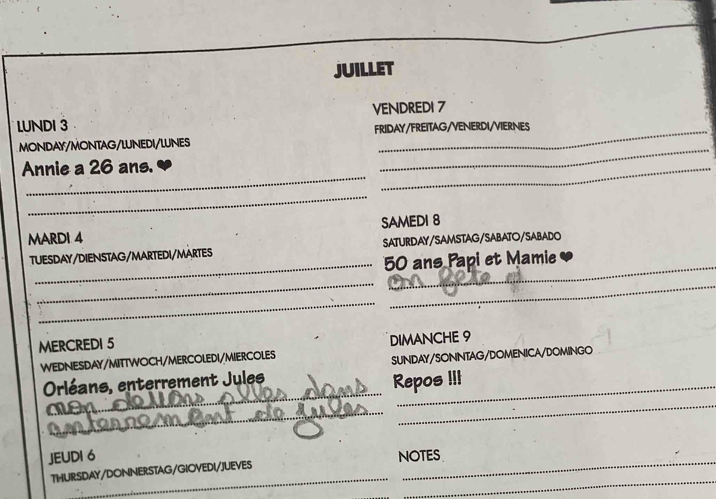 JUILLET
LUNDI 3
MONDAY/MONTAG/LUNEDI/LUNES
Annie a 26 ans. ♥
MARDI 4
TUESDAY/DIENSTAG/MARTEDI/MARTES
MERCREDI 5
WEDNESDAY/MITTWOCH/MERCOLEDI/MIERCOLES
Orléans, enterrement Jules
devons alles dans
anterrement de Jules
JEUDI 6
THURSDAY/DONNERSTAG/GIOVEDI/JUEVES
VENDREDI 7
FRIDAY/FREITAG/VENERDI/VIERNES
SAMEDI 8
SATURDAY/SAMSTAG/SABATO/SABADO
50 ans Papi et Mamie ♥
on fete
DIMANCHE 9
SUNDAY/SONNTAG/DOMENICA/DOMINGO
Repos !!!
NOTES